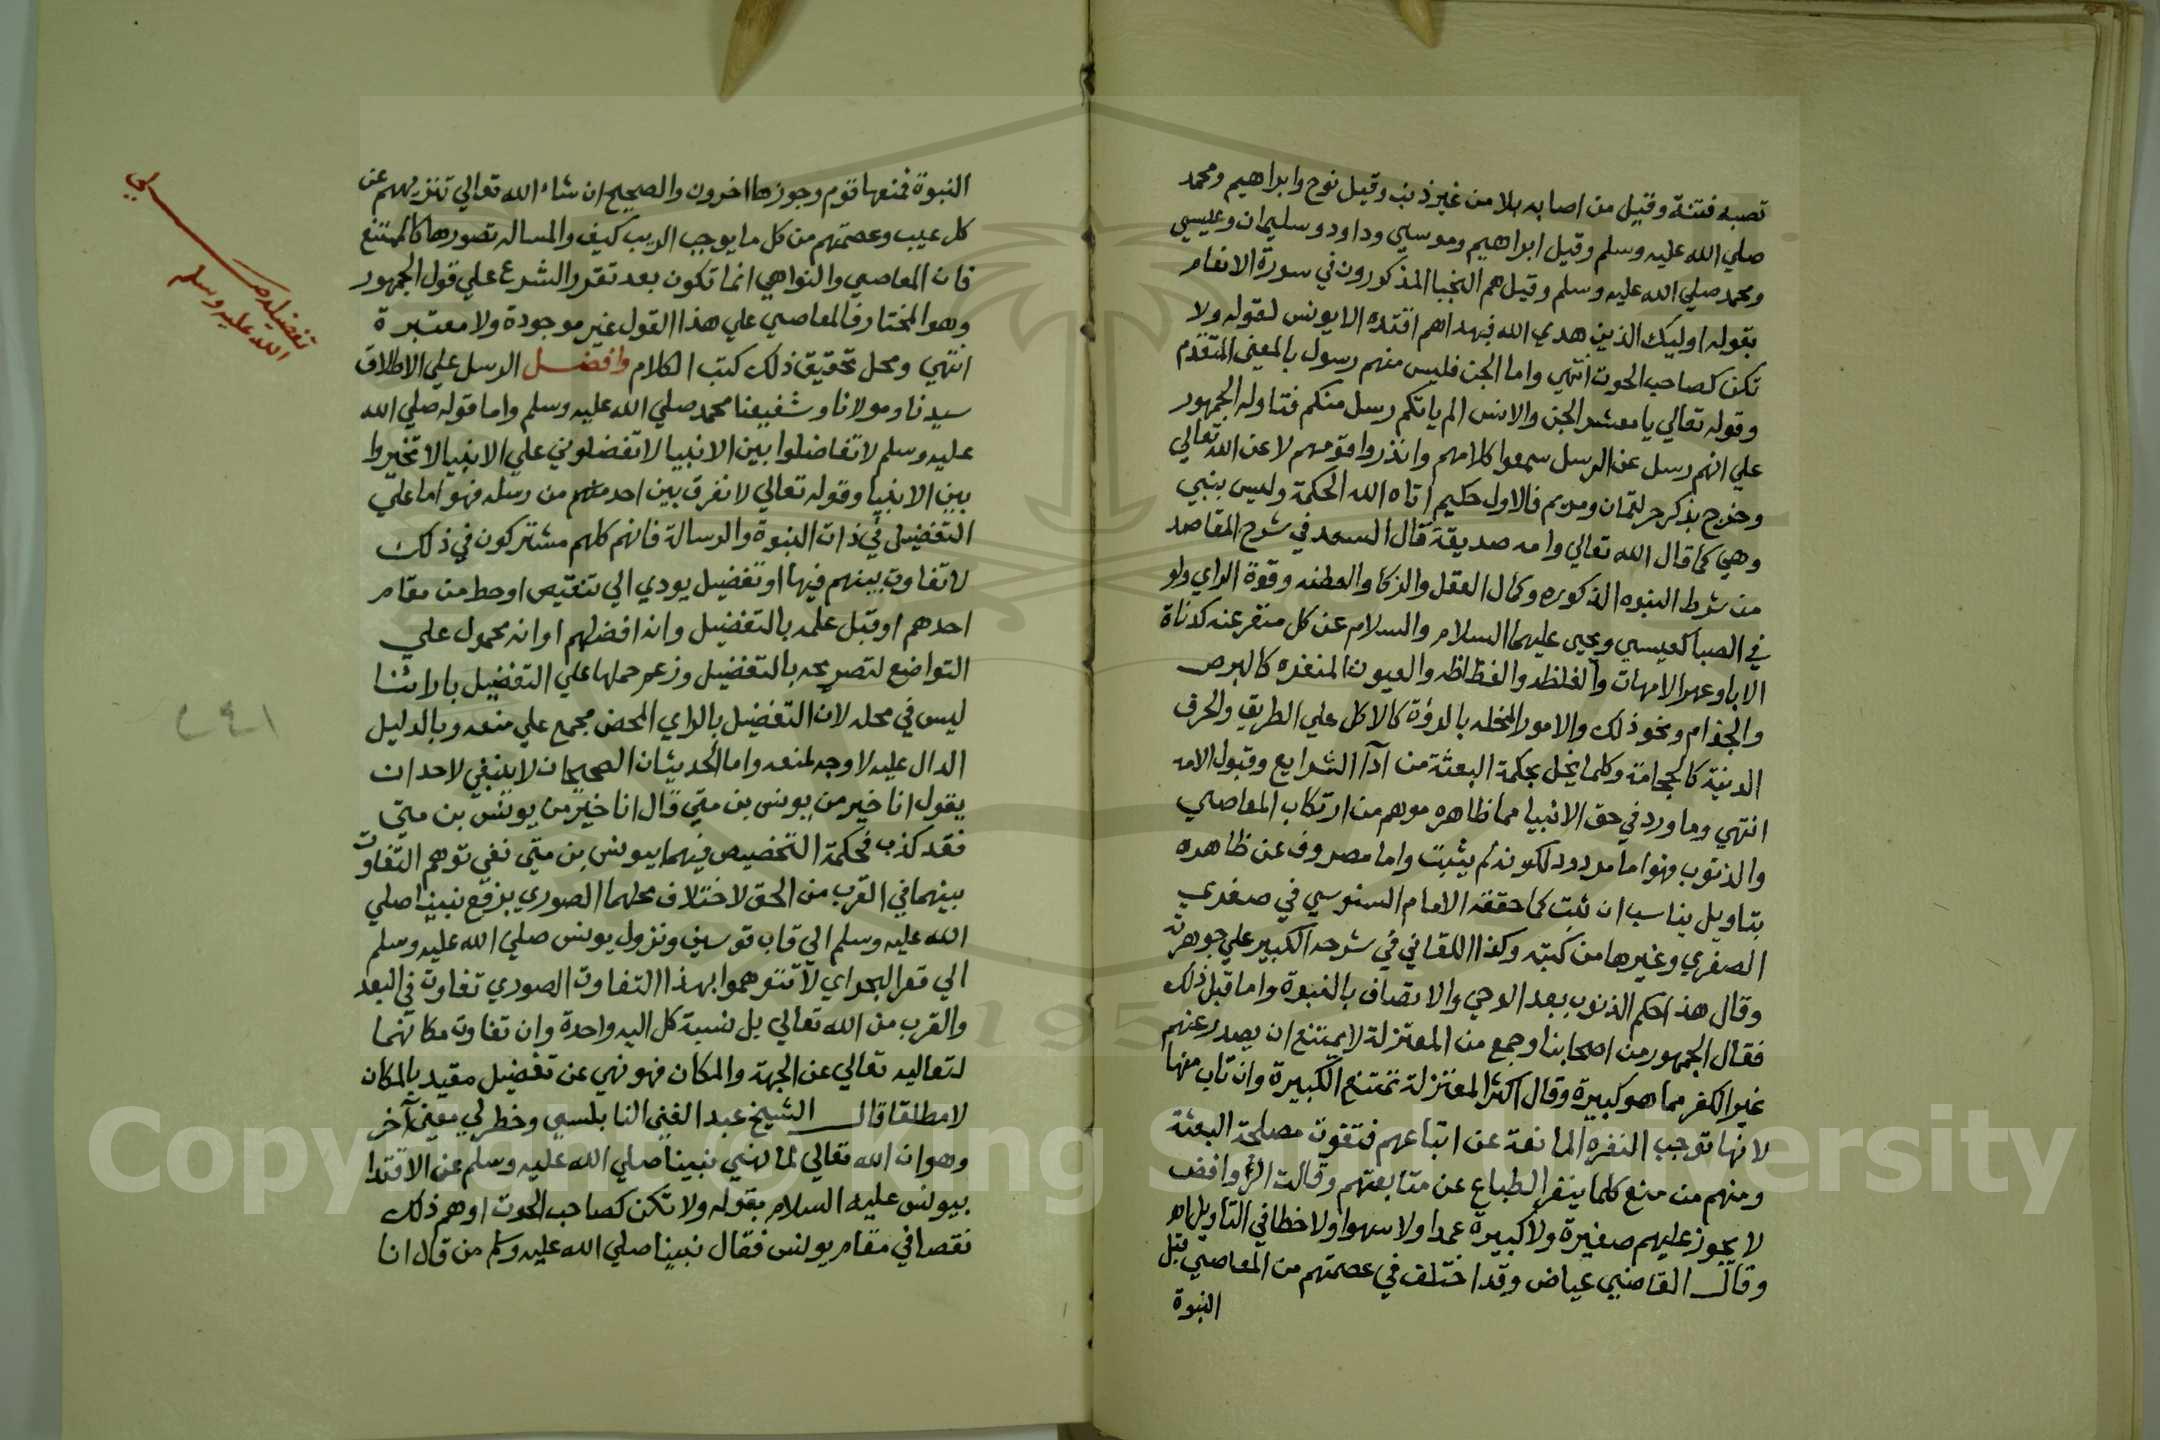 تصبه فتنة وقيل من اصابه بلا من غير ذنب وقيل نوح وابراهيم ومحمد
صلي الله عليه وسلم وقيل ابراهيم وموسي وداود وسليمان وعيسي
ومحمد صلي الله عليه وسلم وقيل هم النجبا المذكورون في سورة الانعام
بقوله اوليك الذين هدي الله فبهداهم اقتده الا يونس لقوله ولا
تكن كصاحب الحوت انتهي واما الجن فليس منهم رسول بالمعني المتقدم
وقوله تعالي يا معشر الجن والانس الم ياتكم رسل منكم فتاوله الجمهور
علي انهم رسل عن الرسل سمعوا كلامهم وانذروا قومهم لا عن الله تعالي
وخرج بذكر حر لقمان ومريم فالاول حكيم اتاه الله الحكمة وليس بنبي
وهي كما قال الله تعالي وامه صديقة قال السعد في شرح المقاصد
من شرط النبوه الذكوره وكمال العقل والزكا والفطنه وقوة الراي ولو
في الصبا كعيسي ويحيي عليهما السلام والسلام عن كل منفر عنه كدناة
الابا وعهر الامهات والغلظه والفظاظه والعيون المنفره كالبرص
والجذام ونحو ذلك والامور المخله بالمروة كالاكل علي الطريق والحرف
الدنية كالحجامة وكلما يخل بحكمة البعثة من آدآ الشرايع وقبول الامه
انتهي وما ورد في حق الانبيا مما ظاهره موهم من ارتكاب المعاصي
والذنوب فهو اما مردود لكونه لم يثبت واما مصروف عن ظاهره
بتاويل يناسب ان ثبت كما حققه الامام السنوسي في صغري
الصغري وغيرها من كتبه وكذا اللقاني في شرحه الكبير علي جوهرته
وقال هذا حكم الذنوب بعد الوحي والاتصاف بالنبوة واما قبل ذلك
فقال الجمهور من اصحابنا وجمع من المعتزلة لا يمتنع ان يصدر عنهم
غير الكفر مما هو كبيرة وقال اكثر المعتزلة تمتنع الكبيرة وان تاب منها
لانها توجب النفره المانعة عن اتباعهم فتفوت مصلحة البعثة
ومنهم من منع كلما ينفر الطباع عن متابعتهم وقالت الروافض
لا يجوز عليهم صغيرة ولا كبيرة عمدا ولا سهوا ولا خطا في التاويل اه
وقال القاضي عياض وقد اختلف في عصمتهم من المعاصي قبل
النبوة
النبوة فمنعها قوم وجوزها اخرون والصحيح ان شاء الله تعالي تنزيههم عن
كل عيب وعصمتهم من كل ما يوجب الريب كيف والمساله تصورها كالممتنع
فان المعاصي والنواهي انما تكون بعد تقرر الشرع علي قول الجمهور
وهو المختار فالمعاصي علي هذا القول غير موجودة ولا معتبرة
انتهي ومحل تحقيق ذلك كتب الكلام وافضل الرسل علي الاطلاق
سيدنا ومولانا وشفيعنا محمد صلي الله عليه وسلم واما قوله صلي الله
عليه وسلم لا تفاضلوا بين الانبيا لا تفضلوني علي الانبيا لا تخيروا
بين الانبيا وقوله تعالي لا نفرق بين احد منهم من رسله فهو اما علي
التفضيل في ذات النبوة والرسالة فانهم كلهم مشتركون في ذلك
لا تفاوت بينهم فيها او تفضيل يودي الي تنقيص او حط من مقام
احدهم او قبل علمه بالتفضيل وانه افضلهم او انه محمول علي
التواضع لتصريحه بالتفضيل وزعم حملها علي التفضيل بارائنا
ليس في محله لان التفضيل بالراي المحض مجمع علي منعه وبالدليل
الدال عليه لا وجه لمنعه واما الحديثان الصحيحان لا ينبغي لاحد ان
يقول انا خير من يونس بن متي قال انا خير من يونس بن متي
فقد كذب فحكمة التخصيص فيهما بيونس بن متي نفي توهم التفاوت
بينهما في القرب من الحق لاختلاف محلهما الصوري برفع نبينا صلي
الله عليه وسلم الي قاب قوسين ونزول يونس صلي الله عليه وسلم
الي قعر البحر اي لا تتوهموا بهذا التفاوت الصوري تفاوت في البعد
والقرب من الله تعالي بل نسبة كل اليه واحدة وان تفاوت مكانهما
لتعاليه تعالي عن الجهة والمكان فهو نهي عن تفضيل مقيد بالمكان
لا مطلقا قال الشيخ عبد الغني النابلسي وخطر لي معني آخر
وهو ان الله تعالي لما نهي نبينا صلي الله عليه وسلم عن الاقتدا
بيونس عليه السلام بقوله ولا تكن كصاحب الحوت اوهم ذلك
نقصا في مقام يونس فقال نبينا صلي الله عليه وسلم من قال انا
تفضيله صلي
الله عليه وسلم
Copyright © King Saud University
195